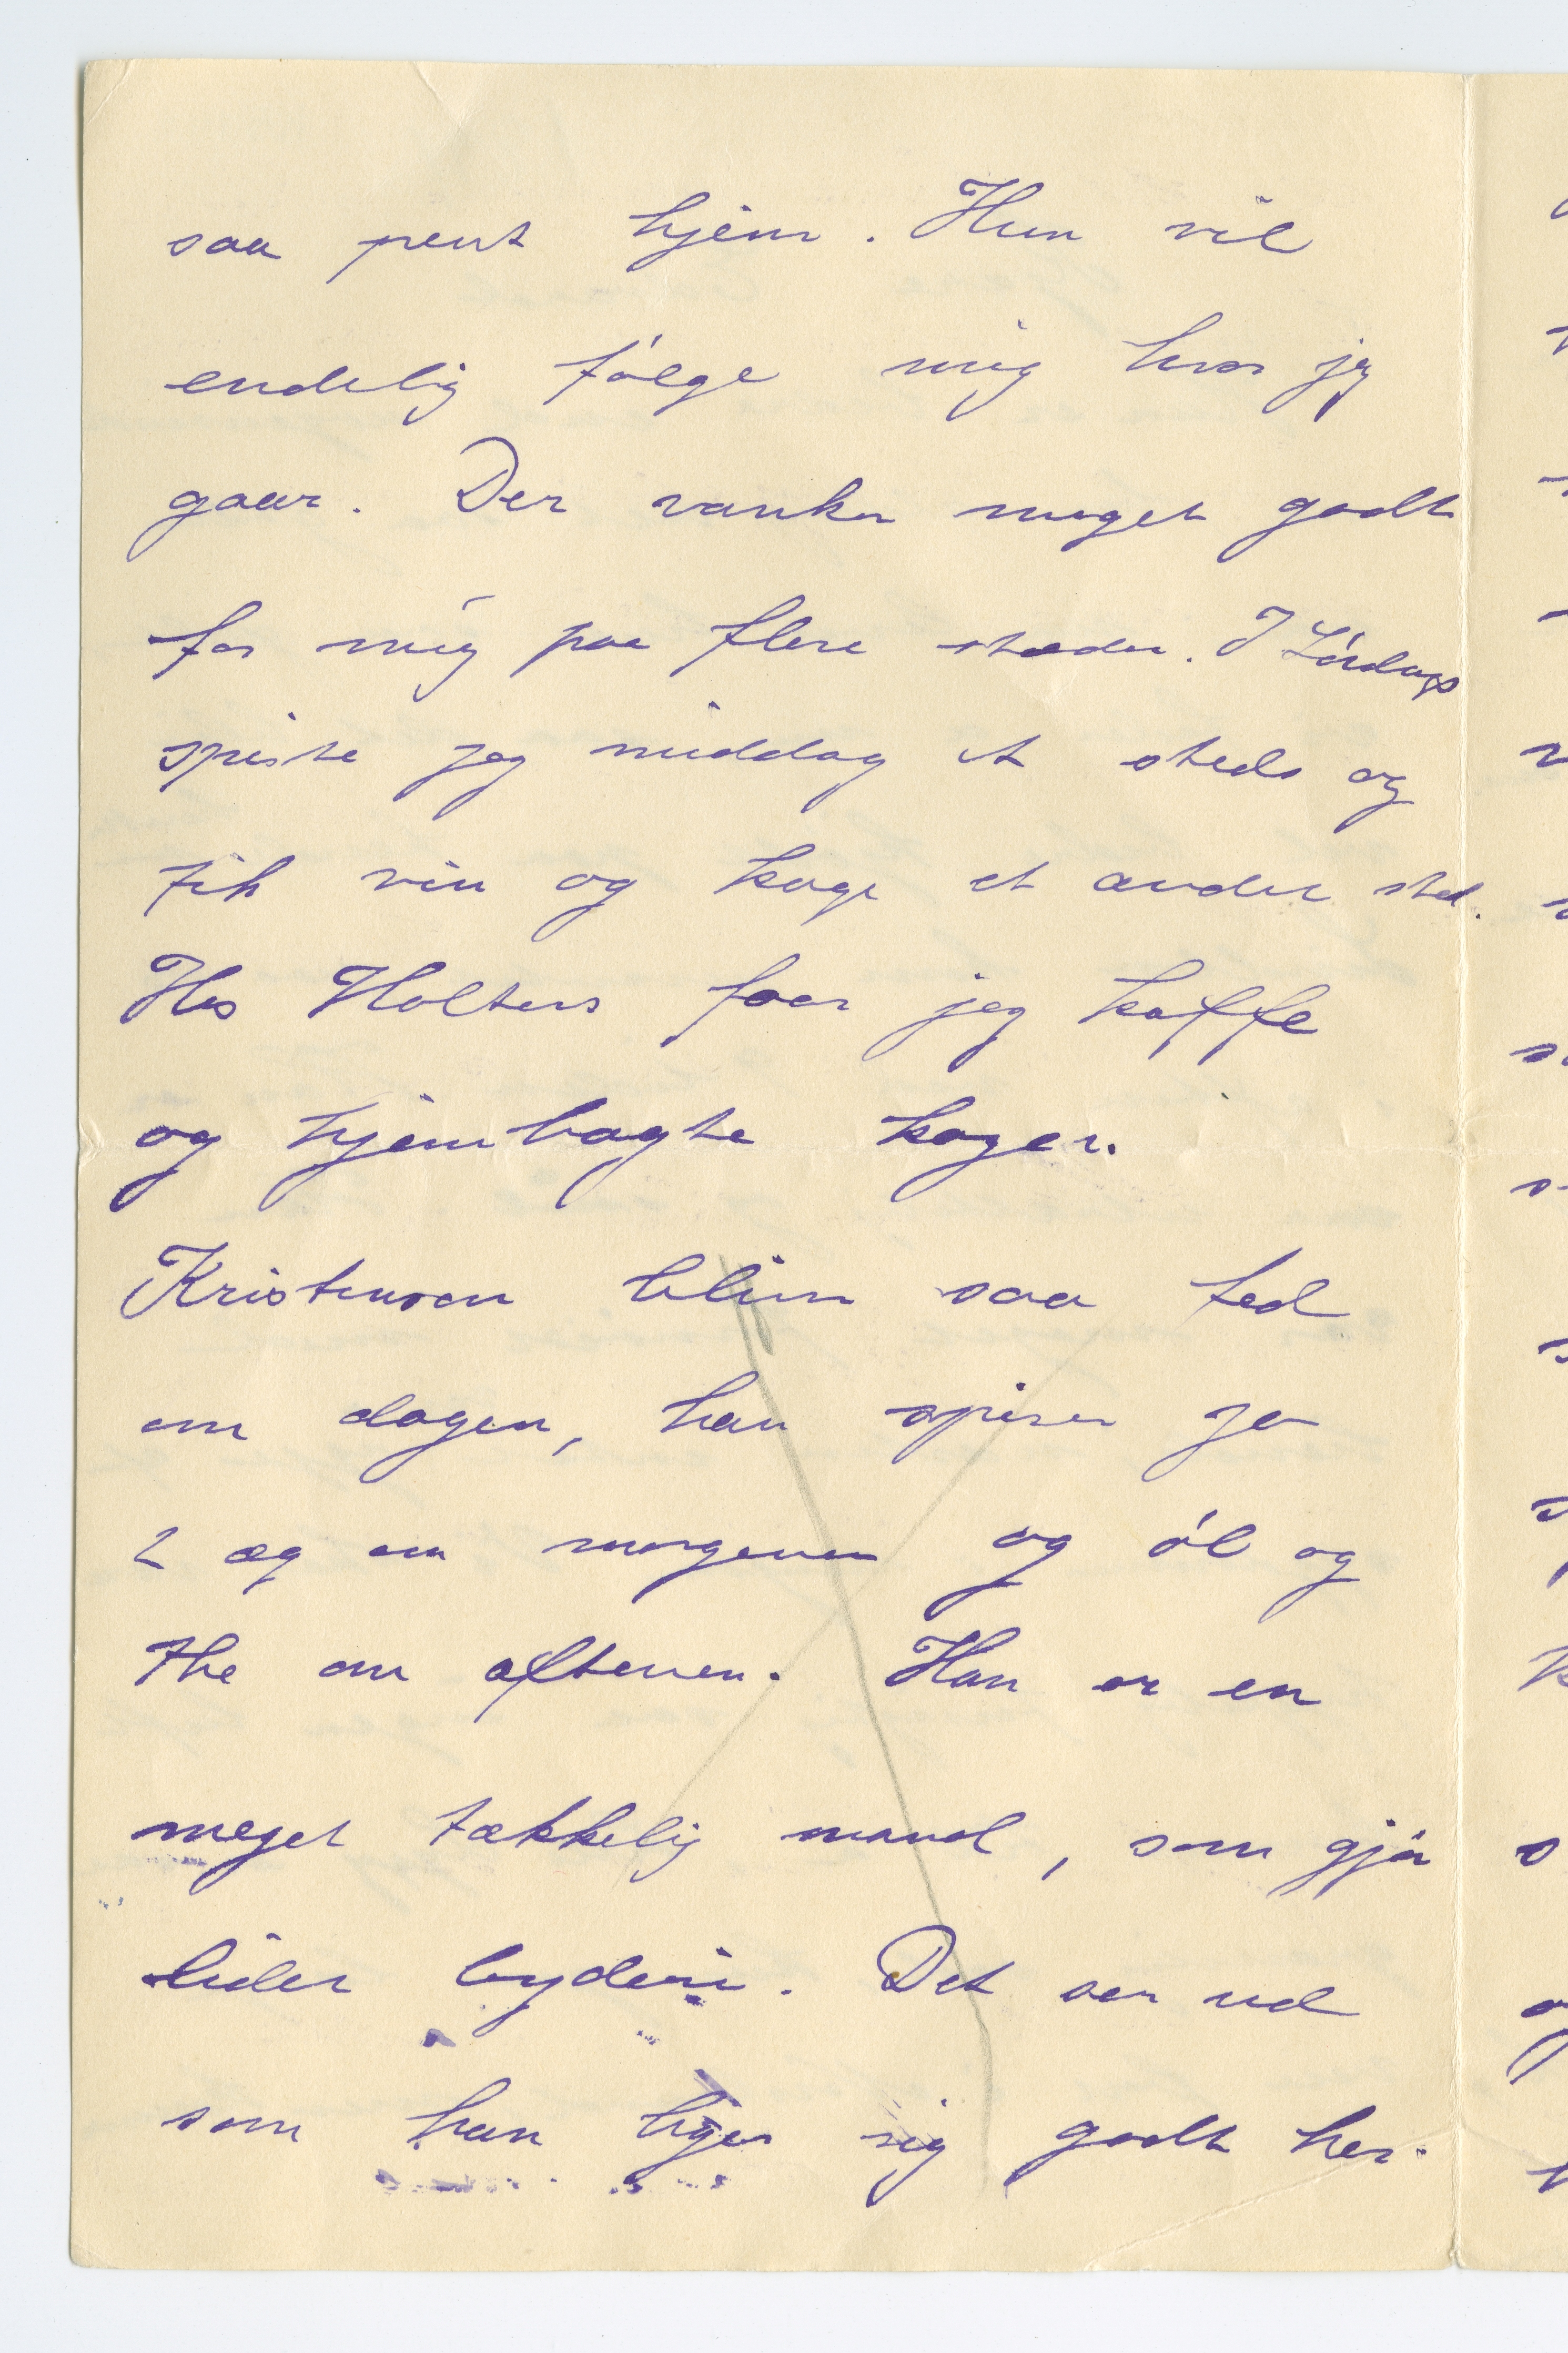 saa pent hjem. Hun vil
endelig følge mig hvor jeg
gaar. Der vanker meget godt
for mig paa flere stæder. I Lördags
spiste jeg middag et steds og
fik vin og kage et andet sted.
Hos Holters faar jeg kaffe
og hjembagte kager.
Kristensen bliver saa fed
om dagen, han spiser jo
2 æg om morgenen og öl og
the om aftenen. Han er en
meget tækkelig mand, som gjör
lidet
Det ser ud
som han liger sig godt her.